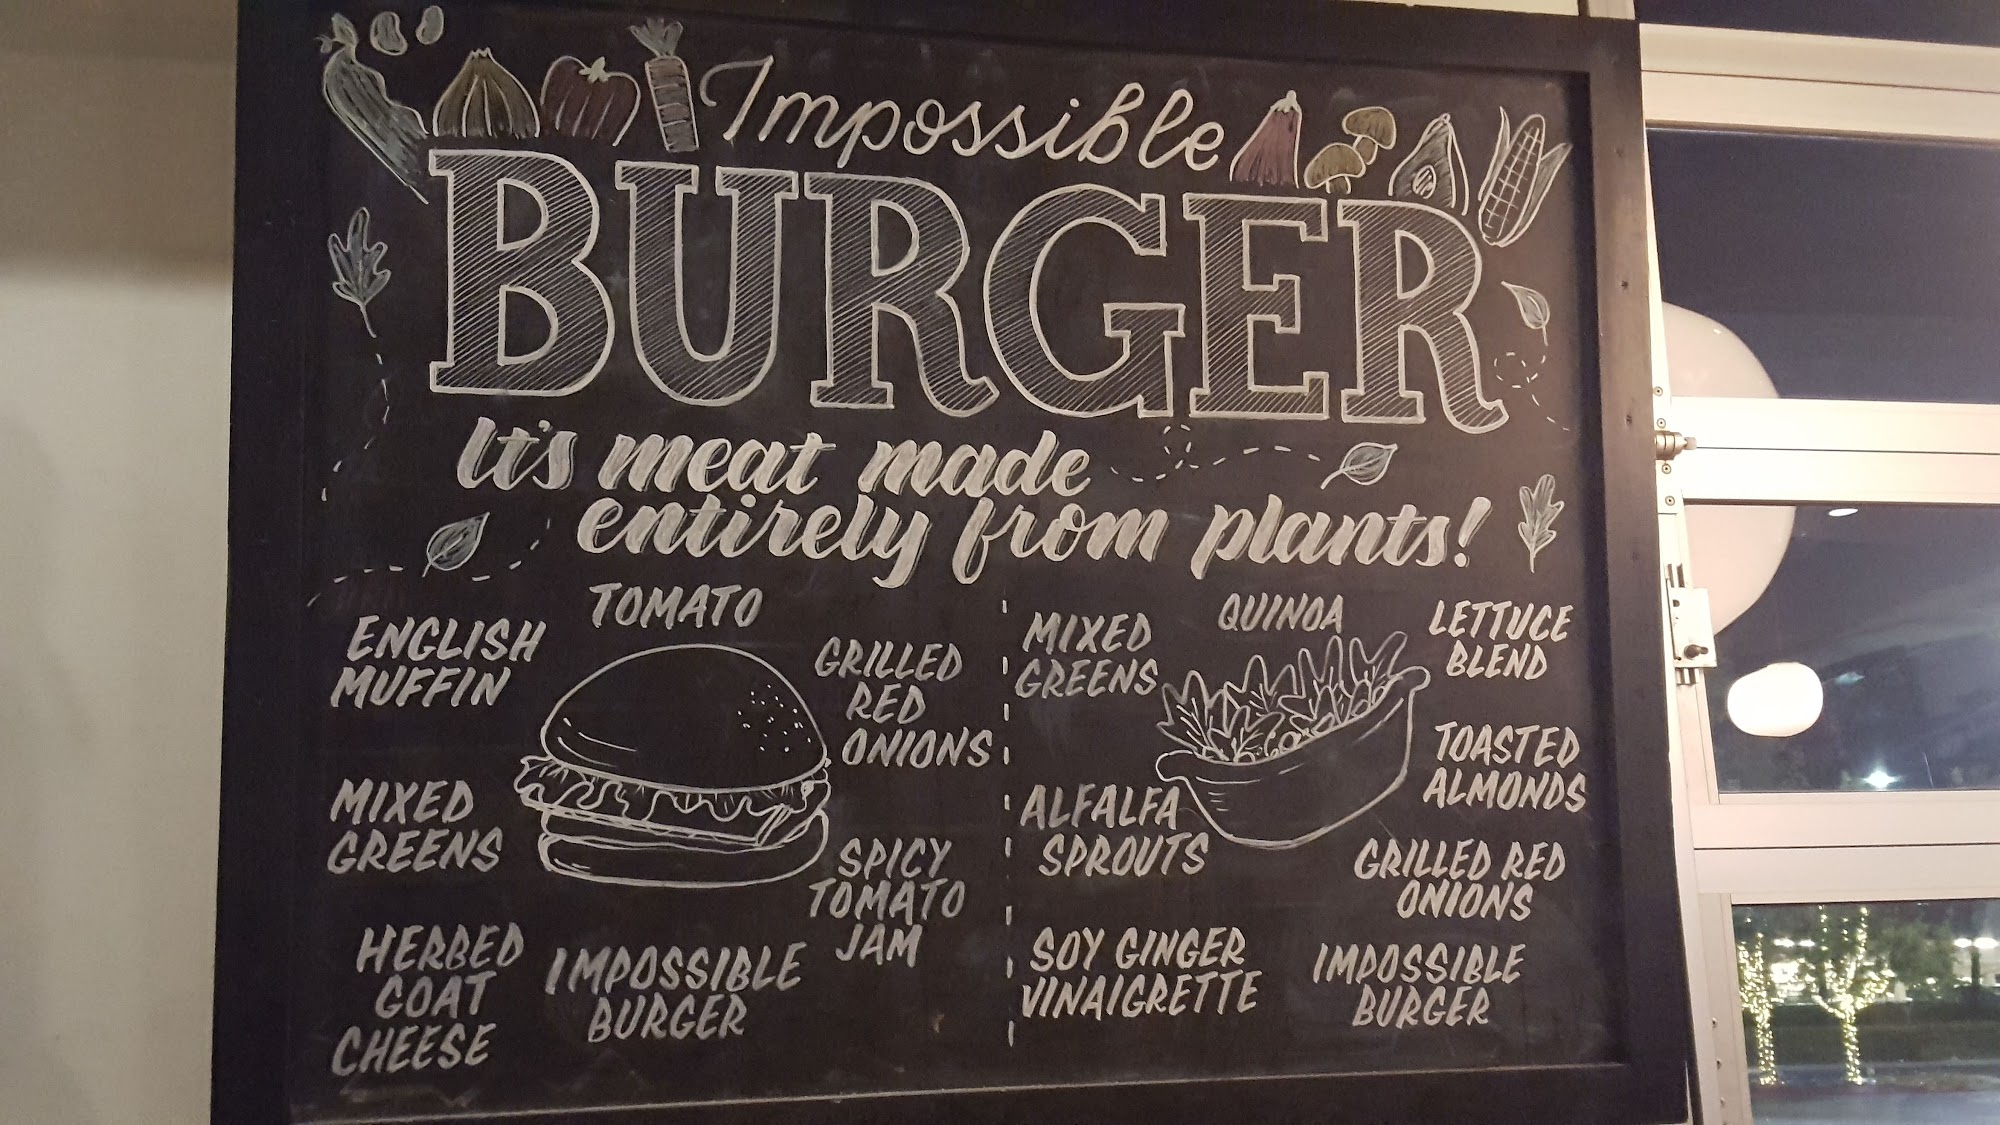 Impossible
BURGER
It's meat made
entirely from plants!
TOMATO
ENGLISH
MUFFIN
GRILLED
RED
ONIONS
MIXED
GREENS
SPICY
TOMATO
JAM
HERBED
GOAT
CHEESE
IMPOSSIBLE
BURGER
MIXED
GREENS
QUINOA
LETTUCE
BLEND
TOASTED
ALMONDS
ALFALFA
SPROUTS
GRILLED RED
ONIONS
SOY GINGER
VINAIGRETTE
IMPOSSIBLE
BURGER